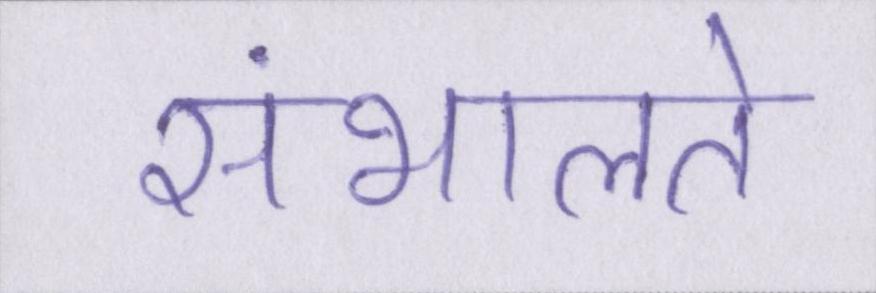 संभालते